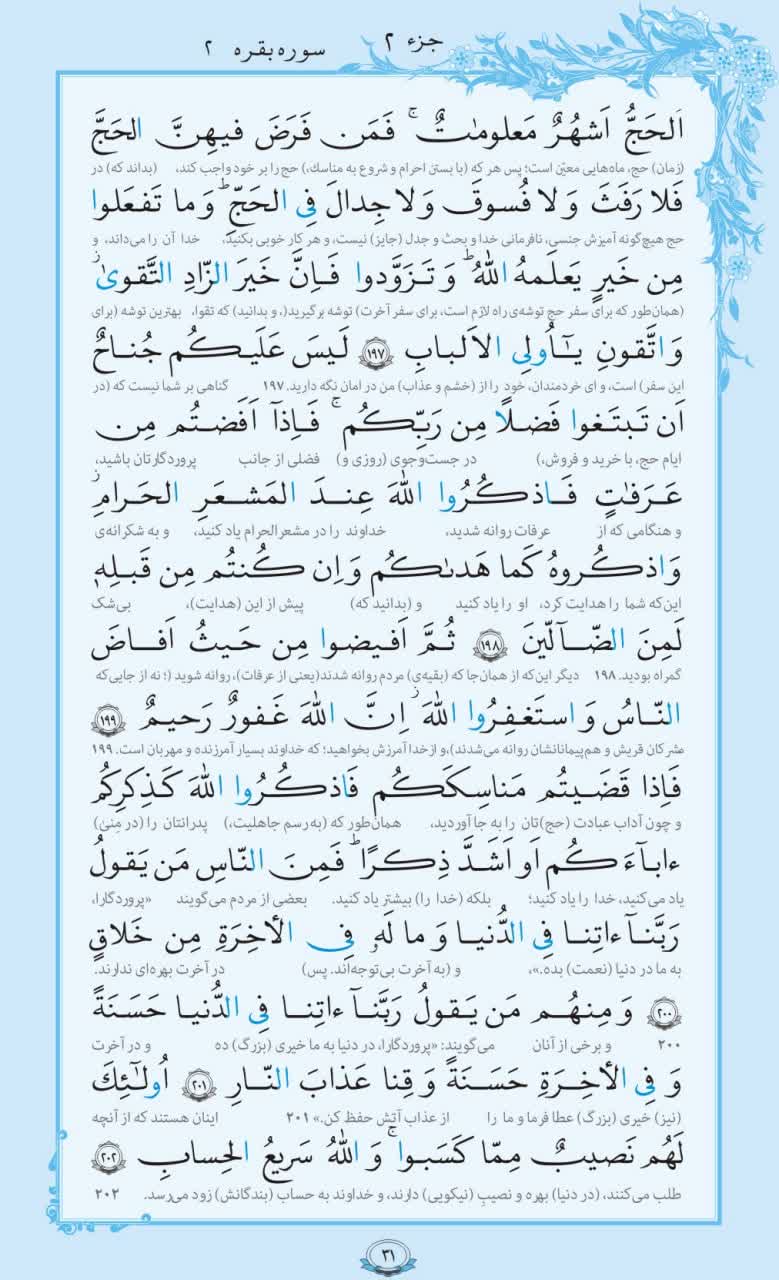 جزء ۲
سوره بقره ۲
اَلحَجُّ اَشهُرٌ مَعلوماتٌ ۚ فَمَن فَرَضَ فيهِنَّ الحَجَّ
(زمان) حج، ماه‌هایی معیّن است؛ پس هر که (با بستن احرام و شروع به مناسك،) حج را بر خود واجب کند، (بداند که) در
فَلا رَفَثَ وَ لا فُسوقَ وَ لا جِدالَ فِی الحَجِّ ۗ وَ ما تَفعَلوا
حج هیچ‌گونه آمیزش جنسی، نافرمانی خدا و بحث و جدل (جایز) نیست، و هر کار خوبی بکنید، خدا آن را می‌داند، و
مِن خَیرٍ یَعلَمهُ اللهُ ۗ وَ تَزَوَّدوا فَاِنَّ خَیرَ الزّادِ التَّقویٰ ۚ
(همان‌طور که برای سفر حج توشه‌ی راه لازم است، برای سفر آخرت) توشه برگیرید(، و بدانید) که تقوا، بهترین توشه (برای
وَ اتَّقونِ یٰٓاُولِی الاَلبابِ ۱۹۷ لَیسَ عَلَیکُم جُناحٌ
این سفر) است، و ای خردمندان، خود را از (خشم و عذاب) من در امان نگه دارید. ۱۹۷ گناهی بر شما نیست که (در
اَن تَبتَغوا فَضلًا مِن رَبِّکُم ۚ فَاِذآ اَفَضتُم مِن
ایام حج، با خرید و فروش،) در جست‌وجوی (روزی و) فضلی از جانب پروردگارتان باشید،
عَرَفٰتٍ فَاذکُرُوا اللهَ عِندَ المَشعَرِ الحَرامِ ۖ
و هنگامی که از عرفات روانه شدید، خداوند را در مشعرالحرام یاد کنید، و به شکرانه‌ی
وَ اذکُروهُ کَما هَدٰىکُم وَ اِن کُنتُم مِن قَبلِهٖ
این‌که شما را هدایت کرد، او را یاد کنید و (بدانید که) پیش از این (هدایت)، بی‌شک
لَمِنَ الضّآلّینَ ۱۹۸ ثُمَّ اَفیضوا مِن حَیثُ اَفاضَ
گمراه بودید. ۱۹۸ دیگر این‌که از همان‌جا که (بقیه‌ی) مردم روانه شدند(یعنی از عرفات)، روانه شوید (؛ نه از جایی‌که
النّاسُ وَ استَغفِرُوا اللهَ ۚ اِنَّ اللهَ غَفورٌ رَحیمٌ ۱۹۹
مشرکان قریش و هم‌پیمانانشان روانه می‌شدند)، و از خدا آمرزش بخواهید؛ که خداوند بسیار آمرزنده و مهربان است. ۱۹۹
فَاِذا قَضَیتُم مَناسِکَکُم فَاذکُرُوا اللهَ کَذِکرِکُم
و چون آداب عبادت (حج)تان را به جا آوردید، همان‌طور که (به‌رسم جاهلیت،) پدرانتان را (در مِنیٰ)
ءابآءَکُم اَو اَشَدَّ ذِکرًا ۗ فَمِنَ النّاسِ مَن یَقولُ
یاد می‌کنید، خدا را یاد کنید؛ بلکه (خدا را) بیشتر یاد کنید. بعضی از مردم می‌گویند «پروردگارا،
رَبَّنآ ءاتِنا فِی الدُّنیا وَ ما لَهٗ فِی الأخِرَةِ مِن خَلاقٍ
به ما در دنیا (نعمت) بده.»، و (به آخرت بی‌توجه‌اند. پس) در آخرت بهره‌ای ندارند.
۲۰۰ وَ مِنهُم مَن یَقولُ رَبَّنآ ءاتِنا فِی الدُّنیا حَسَنَةً
۲۰۰ و برخی از آنان می‌گویند: «پروردگارا، در دنیا به ما خیری (بزرگ) ده و در آخرت
وَ فِی الأخِرَةِ حَسَنَةً وَ قِنا عَذابَ النّارِ ۲۰۱ اُولٰٓئِكَ
(نیز) خیری (بزرگ) عطا فرما و ما را از عذاب آتش حفظ کن.» ۲۰۱ اینان هستند که از آنچه
لَهُم نَصیبٌ مِمّا کَسَبوا ۚ وَ اللهُ سَریعُ الحِسابِ ۲۰۲
طلب می‌کنند، (در دنیا) بهره و نصیبِ (نیکویی) دارند، و خداوند به حساب (بندگانش) زود می‌رسد. ۲۰۲
۳۱